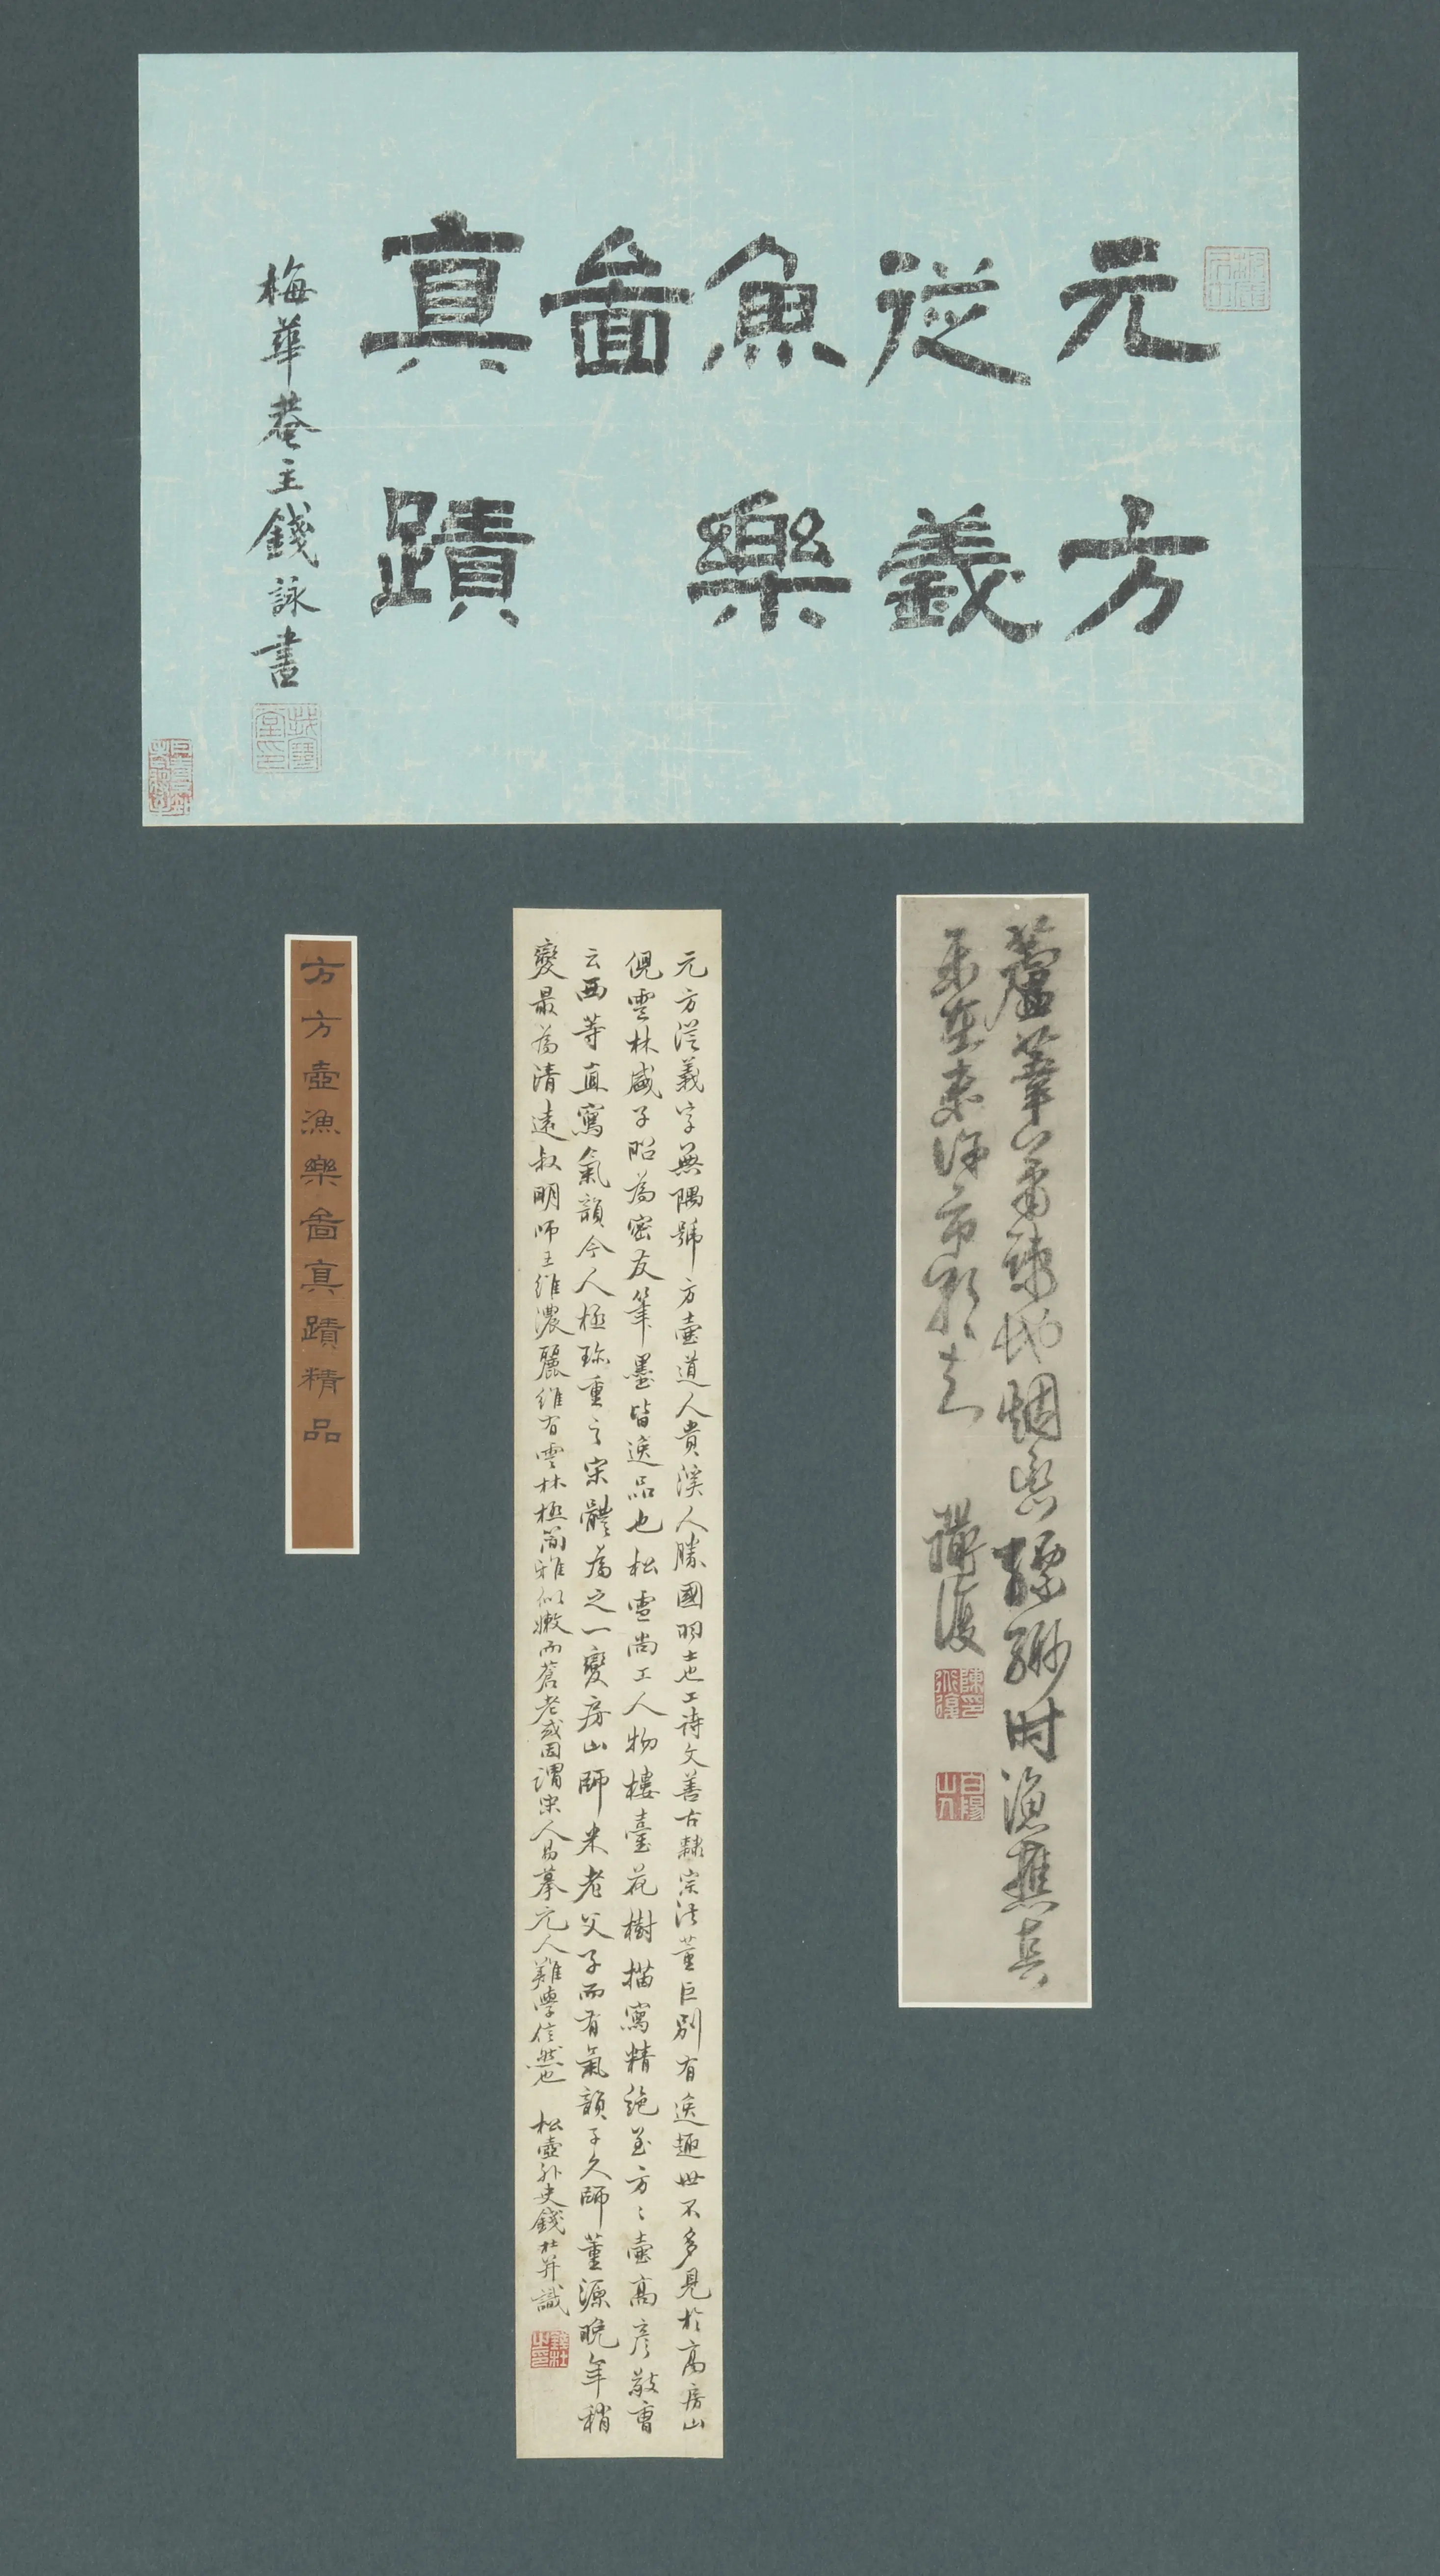 元方
從義
魚樂
啚
真蹟
梅華菴主錢詠書
蘆葦蕭疎地烟雲縹緲时漁樵真
樂在來浮市影去
陳復
陳氏道復
白陽山人
元方從義字無隅號方壺道人貴溪人勝國羽士也工詩文善古隸宗法董巨別有逸趣世不多見於高房山
倪雲林盛子昭為密友筆墨皆逸品也松雪尚工人物樓臺花樹描寫精絕至方〻壺高彦敬曹
云西等直寫氣韻今人極珍重之宋體為之一變房山師米老父子而有氣韻子久師董源晚年稍
變最為清遠叔明師王維濃麗維有雲林極簡雅似嫩而蒼老或因謂宋人易摹元人難學信然也 松壺外史錢杜并識
錢杜之印
方方壺漁樂啚真蹟精品